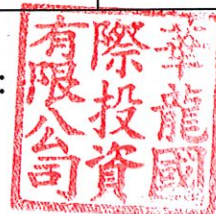 :
華龍國
際投資
有限公司